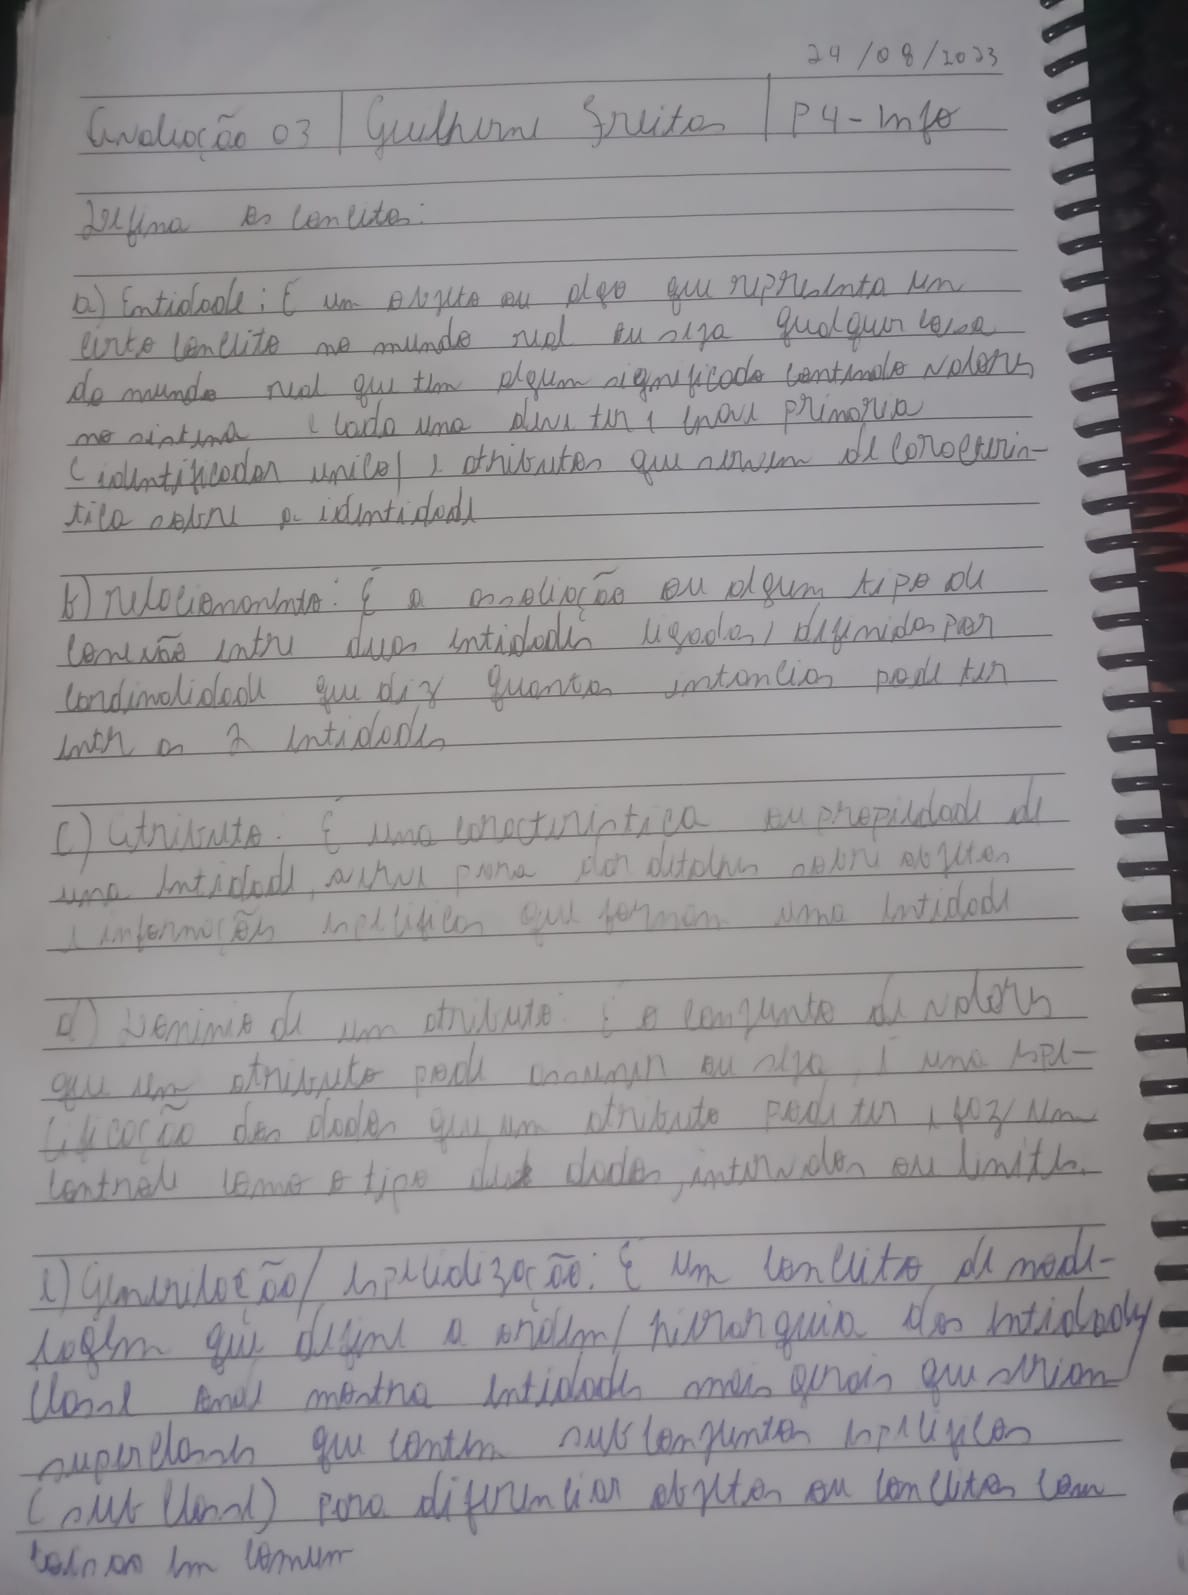 24/08/2023
Avaliação 03 | Guilherme Freitas | P4-Info
Defina os conceitos:
a) Entidade: É um objeto ou algo que representa um
certo conceito no mundo real ou seja qualquer coisa
do mundo real que tem algum significado contendo valores
no sistema e cada uma deve ter 1 chave primaria
(identificador unico) e atributos que servem de caracteris-
tica sobre a identidade
b) relacionamento: É a associação ou algum tipo de
conexão entre duas entidades ligadas, definidas por
cardinalidade que diz quantas intancias pode ter
entre as 2 entidades
c) Atributo: É uma caracteristica ou propiedade de
uma entidade, serve para dar detalhes sobre objetos
e informações especificas que formam uma entidade
d) Dominio de um atributo: É o conjunto de valores
que um atributo pode assumir ou seja, é uma espe-
cificação dos dados que um atributo pode ter, faz um
controle como o tipo dos dados, intervalos ou limites.
e) Generilação/ especialização: É um conceito de mode-
lagem que define a ordem/hierarquia das entidades/
classe mostra entidades mais gerais que seriam
superclasses que contem subconjuntos especificos
(sub classe) para diferenciar objetos ou conceitos com
coisas em comum